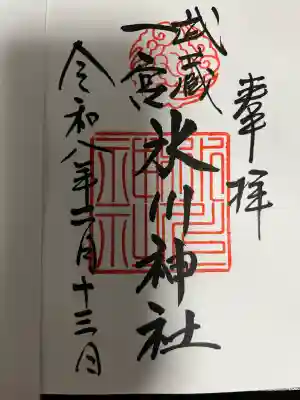 奉拝
武蔵
一宮
氷川神社
令和八年二月十三日